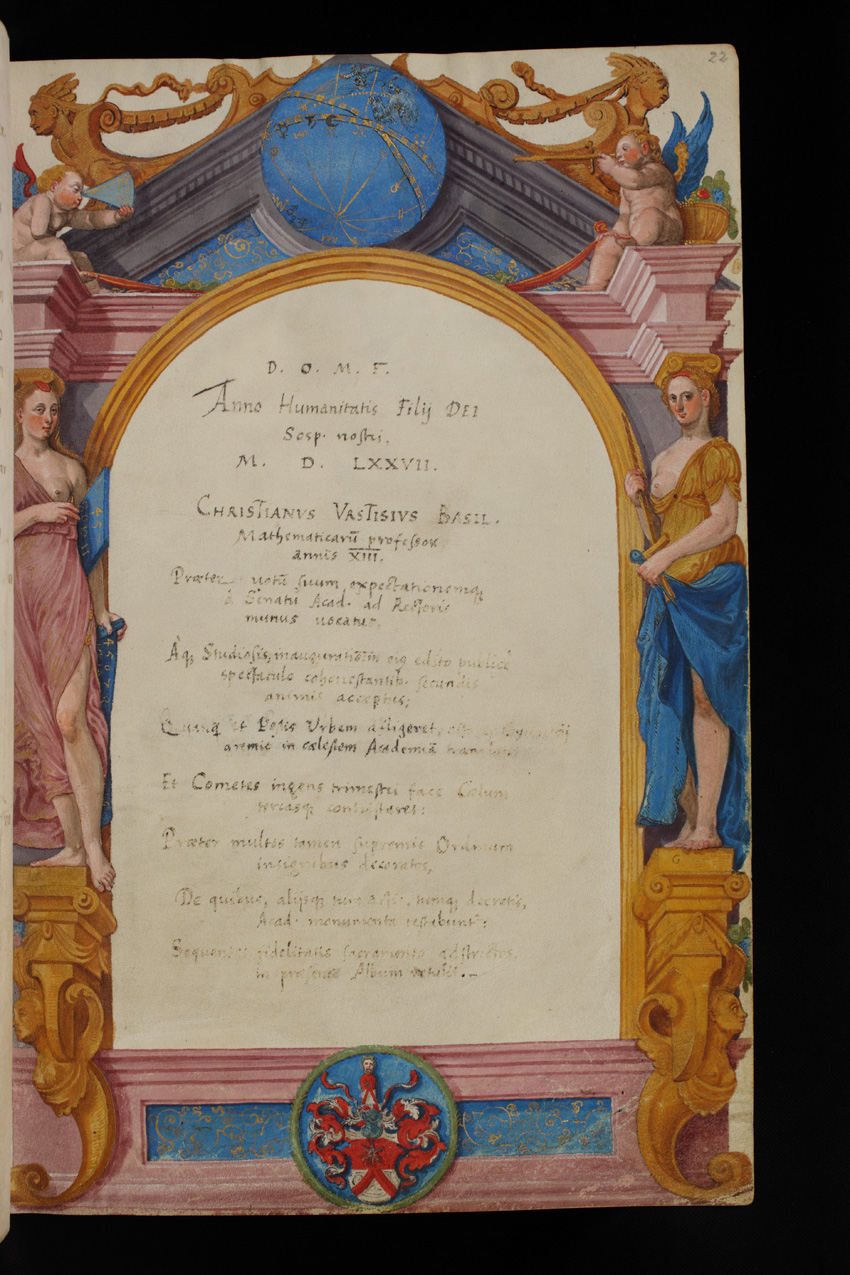 22
D. O. M. F.
Anno Humanitatis Filij DEI
Sosp. nostri,
M. D. LXXVII.
CHRISTIANVS VRSTISIVS BASIL.
Mathematicarū professor
annis XIII.
Præter votū suum expectationemq;
à Senatu Acad. ad Rectoris
munus vocatus,
Àq; Studiosis, inaugurationem edito publice
spectaculo cohonestantib. secundis
animis acceptus;
Quanq et Pestis Vrbem affligeret,
gremio in cœlestem Academiā
Et Cometes ingens trimestri face Cœlum
terrasq; contristaret:
Præter multos tamen supremis Ordinum
insignibus decoratos,
De quibus, alijsq; tum actis, tumq; decretis,
Acad. monumenta testabunt;
Sequentes fidelitatis sacramento adstrictos
in præsens Album retulit.
G